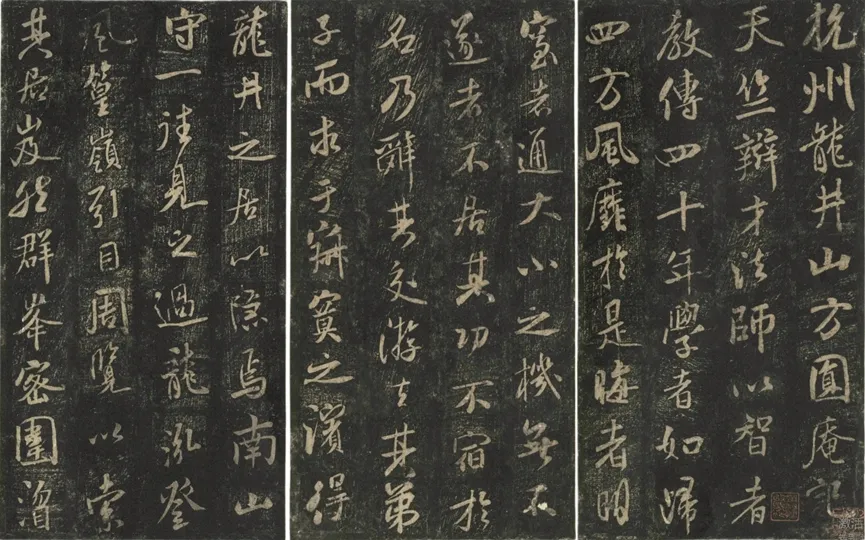 杭州龍井山方圓庵記
天竺辯才法師以智者
教傳四十年學者如歸
四方風靡於是晦者明
窒者通大小之機無不
遂者不居其功不宿於
名乃辭其交游去其弟
子而求于寂寞之濱得
龍井之居以隱焉南山
守一往見之過龍泓登
風篁嶺引目周覽以索
其居岌然群峯密圍